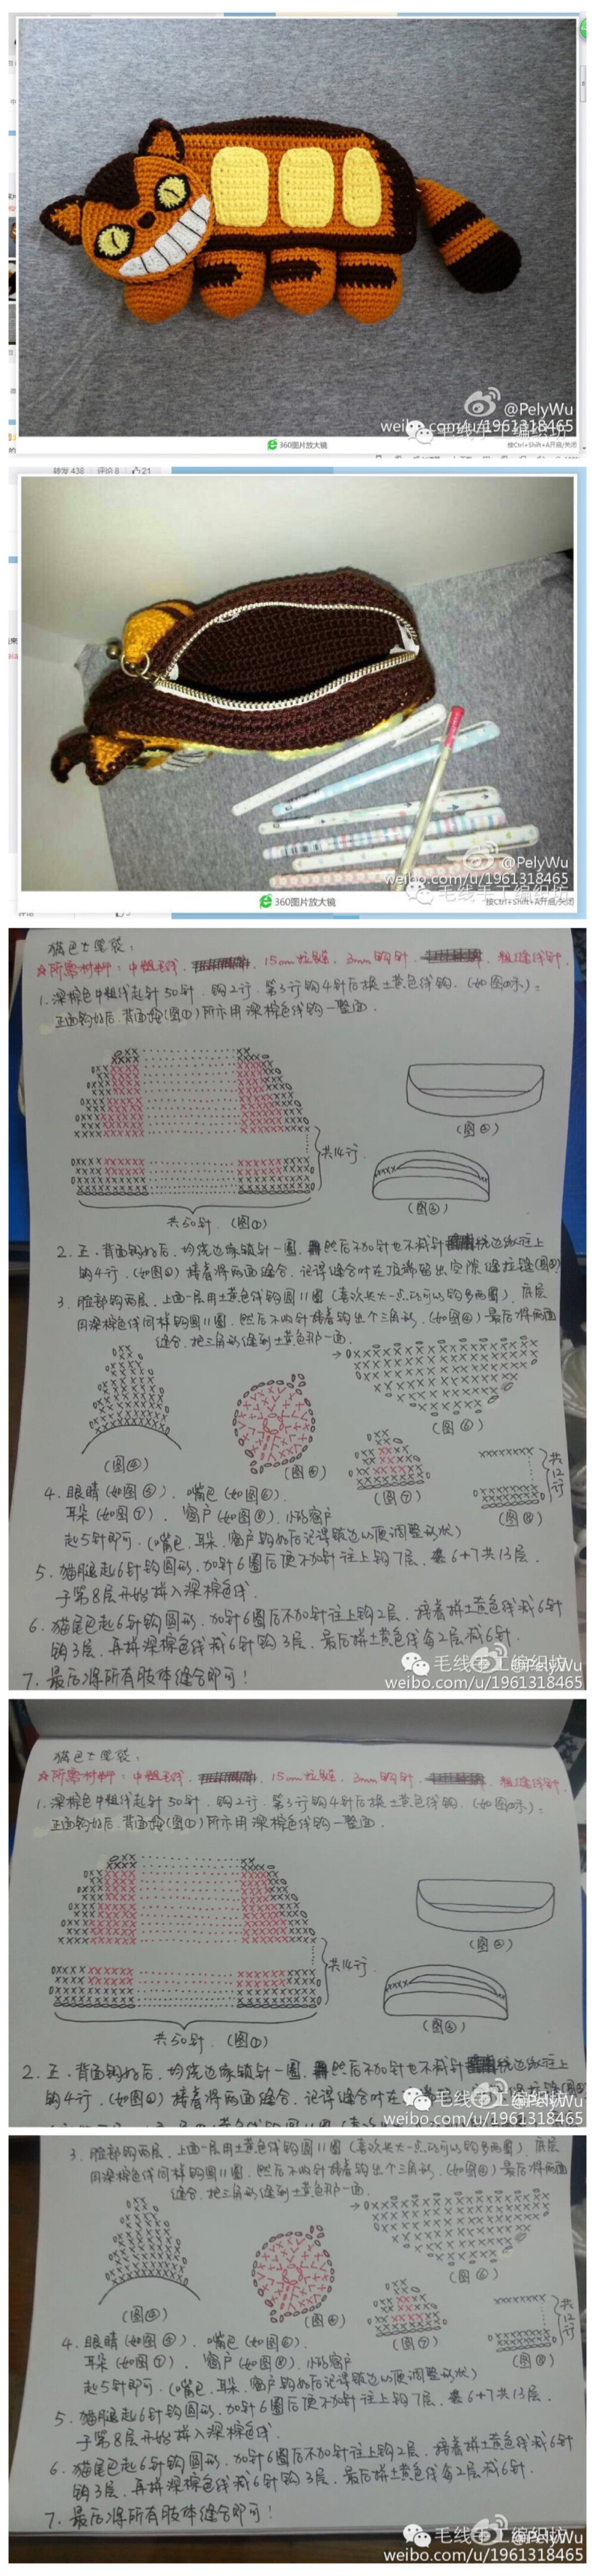 @PelyWu
weibo.com/u/1961318465
毛线手工编织坊
360图片放大镜
按Ctrl+Shift+A开启/关闭
转发 438 评论 8 21
@PelyWu
weibo.com/u/1961318465
毛线手工编织坊
360图片放大镜
按Ctrl+Shift+A开启/关闭
猫巴士笔袋:
☆所需材料: 中粗毛线, 15cm拉链, 3mm钩针, 粗缝线针.
1. 深棕色中粗线起针50针, 钩2行, 第3行钩4针后换土黄色线钩. (如图所示):
正面钩好后, 背面按(图①)所示用深棕色线钩一整面.
共14行
共50针. (图①)
(图②)
(图③)
2. 正、背面钩好后, 均绕边缘锁针一圈, 然后不加针也不减针绕边缘往上
钩4行, (如图②) 接着将两面缝合, 记得缝合时在顶端留出空隙缝拉链(图③)
3. 脸部钩两层, 上面一层用土黄色线钩圆11圈 (喜欢大一点的可以钩多两圈), 底层
用深棕色线同样钩圆11圈, 然后不断针接着钩出个三角形, (如图④) 最后将两面
缝合, 把三角形缝到土黄色那一面.
(图④)
(图⑥)
(图⑦)
共12行
(图⑧)
4. 眼睛(如图⑤)、嘴巴(如图⑥)、
耳朵(如图⑦)、窗户(如图⑧), 小的窗户
起5针即可. (嘴巴、耳朵、窗户钩好后记得锁边以便调整形状)
5. 猫腿起6针钩圆形, 加针6圈后便不加针往上钩7层, 6+7共13层,
于第8层开始拼入深棕色线.
6. 猫尾巴起6针钩圆形, 加针6圈后不加针往上钩2层, 接着拼土黄色线减6针
钩3层, 再拼深棕色线减6针钩3层, 最后拼土黄色线每2层减6针.
7. 最后将所有肢体缝合即可!
毛线手工编织坊
@PelyWu
weibo.com/u/1961318465
猫巴士笔袋:
☆所需材料: 中粗毛线, 15cm拉链, 3mm钩针, 粗缝线针.
1. 深棕色中粗线起针50针, 钩2行, 第3行钩4针后换土黄色线钩. (如图所示):
正面钩好后, 背面按(图①)所示用深棕色线钩一整面.
共14行
共50针. (图①)
(图②)
(图③)
2. 正、背面钩好后, 均绕边缘锁针一圈, 然后不加针也不减针绕边缘往上
钩4行, (如图②) 接着将两面缝合, 记得缝合时在
毛线手工编织坊
@PelyWu
weibo.com/u/1961318465
3. 脸部钩两层, 上面一层用土黄色线钩圆11圈 (喜欢大一点的可以钩多两圈), 底层
用深棕色线同样钩圆11圈, 然后不断针接着钩出个三角形, (如图④) 最后将两面
缝合, 把三角形缝到土黄色那一面.
(图④)
(图⑥)
(图⑦)
共12行
(图⑧)
4. 眼睛(如图⑤)、嘴巴(如图⑥)、
耳朵(如图⑦)、窗户(如图⑧), 小的窗户
起5针即可. (嘴巴、耳朵、窗户钩好后记得锁边以便调整形状)
5. 猫腿起6针钩圆形, 加针6圈后便不加针往上钩7层, 6+7共13层,
于第8层开始拼入深棕色线.
6. 猫尾巴起6针钩圆形, 加针6圈后不加针往上钩2层, 接着拼土黄色线减6针
钩3层, 再拼深棕色线减6针钩3层, 最后拼土黄色线每2层减6针.
7. 最后将所有肢体缝合即可!
毛线手工编织坊
@PelyWu
weibo.com/u/1961318465